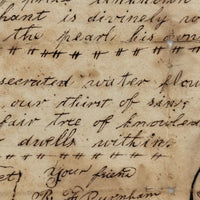 hant is divinely w
the pearl, his
secrated water flow
our thirst of sins;
fair tree of knowled
dwells within.
Your friend
Burnham